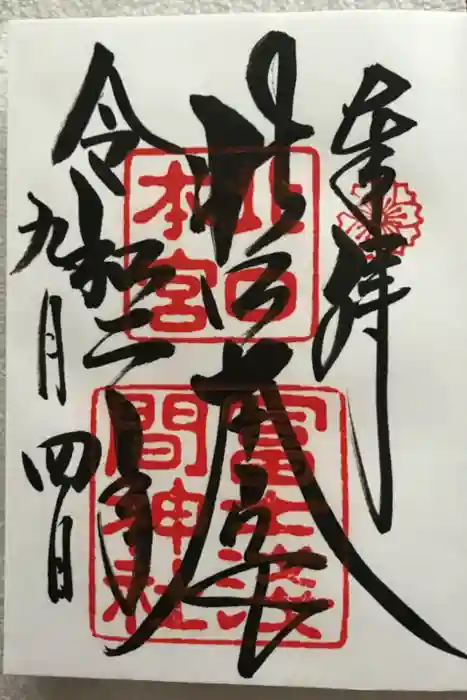 奉拝
北口本宮
令和二年
九月四日
北口
本宮
冨士浅
間神社